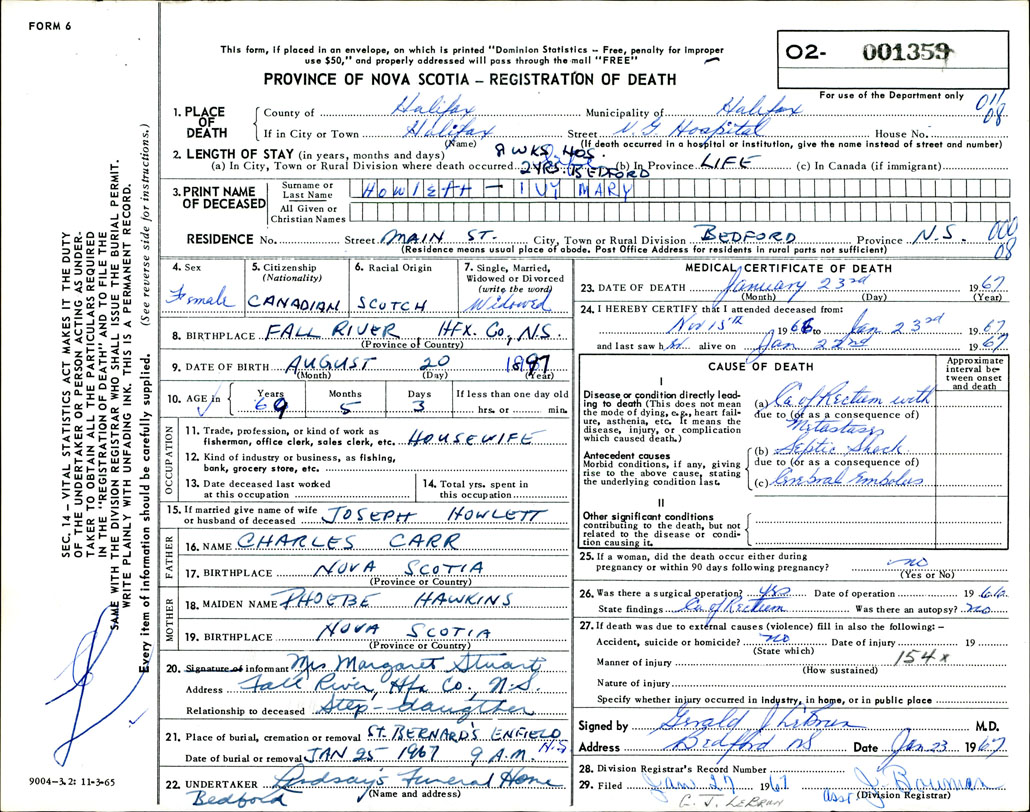 FORM 6
This form, if placed in an envelope, on which is printed "Dominion Statistics -- Free, penalty for improper
use $50," and properly addressed will pass through the mail "FREE"
PROVINCE OF NOVA SCOTIA – REGISTRATION OF DEATH
O2- 001359
For use of the Department only
1. PLACE OF DEATH County of Halifax Municipality of Halifax 011
If in City or Town Halifax Street V. G Hospital House No. 08
(Name) (If death occurred in a hospital or institution, give the name instead of street and number)
2. LENGTH OF STAY (in years, months and days) 8 WKS, HOS.
(a) In City, Town or Rural Division where death occurred 2 YRS. BEDFORD (b) In Province LIFE (c) In Canada (if immigrant)
3. PRINT NAME OF DECEASED Surname or Last Name HOWLETT – IVY MARY
All Given or Christian Names
RESIDENCE No. Street MAIN ST. City, Town or Rural Division BEDFORD Province N.S. 000
(Residence means usual place of abode. Post Office Address for residents in rural parts not sufficient) 08
4. Sex Female
5. Citizenship (Nationality) CANADIAN
6. Racial Origin SCOTCH
7. Single, Married, Widowed or Divorced (write the word) Widowed
8. BIRTHPLACE FALL RIVER HFX. Co, N.S.
(Province or Country)
9. DATE OF BIRTH AUGUST 20 1897
(Month) (Day) (Year)
10. AGE in Years 69 Months 5 Days 3 If less than one day old
hrs. or min.
OCCUPATION
11. Trade, profession, or kind of work as
fisherman, office clerk, sales clerk, etc. HOUSEWIFE
12. Kind of industry or business, as fishing,
bank, grocery store, etc.
13. Date deceased last worked
at this occupation
14. Total yrs. spent in
this occupation
15. If married give name of wife
or husband of deceased JOSEPH HOWLETT
FATHER
16. NAME CHARLES CARR
17. BIRTHPLACE NOVA SCOTIA
(Province or Country)
MOTHER
18. MAIDEN NAME PHOEBE HAWKINS
19. BIRTHPLACE NOVA SCOTIA
(Province or Country)
20. Signature of informant Mrs Margaret Stuart
Address Fall River, Hfx Co, N.S.
Relationship to deceased Step-daugther
21. Place of burial, cremation or removal ST. BERNARD'S ENFIELD N.S
Date of burial or removal JAN 25 1967 9 A.M.
22. UNDERTAKER Lindsay's Funeral Home
Bedford (Name and address)
MEDICAL CERTIFICATE OF DEATH
23. DATE OF DEATH January 23rd 1967
(Month) (Day) (Year)
24. I HEREBY CERTIFY that I attended deceased from:
Nov 15th 1966 to Jan 23rd 1967
and last saw h alive on Jan 22nd 1967
CAUSE OF DEATH
Approximate interval between onset and death
I
Disease or condition directly leading to death (This does not mean
the mode of dying, e.g., heart failure, asthenia, etc. It means the
disease, injury, or complication
which caused death.)
(a) Ca. of Rectum with
due to (or as a consequence of)
Metastases
Antecedent causes
Morbid conditions, if any, giving
rise to the above cause, stating
the underlying condition last.
(b) Septic Shock
due to (or as a consequence of)
(c) Cerebral Embolus
II
Other significant conditions
contributing to the death, but not
related to the disease or condition causing it.
25. If a woman, did the death occur either during
pregnancy or within 90 days following pregnancy? no
(Yes or No)
26. Was there a surgical operation? yes Date of operation 1966
State findings Ca. of Rectum Was there an autopsy? No
27. If death was due to external causes (violence) fill in also the following:–
Accident, suicide or homicide? no Date of injury 19
(State which)
Manner of injury 154x
(How sustained)
Nature of injury
Specify whether injury occurred in industry, in home, or in public place
Signed by Gerald J LeBrun M.D.
Address Bedford NS Date Jan 23 1967
28. Division Registrar's Record Number
29. Filed Jan 27 1967 J. Bauman
asst (Division Registrar)
G. J. LeBrun
SEC. 14 – VITAL STATISTICS ACT MAKES IT THE DUTY
OF THE UNDERTAKER OR PERSON ACTING AS UNDER-
TAKER TO OBTAIN ALL THE PARTICULARS REQUIRED
IN THE "REGISTRATION OF DEATH" AND TO FILE THE
SAME WITH THE DIVISION REGISTRAR WHO SHALL ISSUE THE BURIAL PERMIT.
WRITE PLAINLY WITH UNFADING INK. THIS IS A PERMANENT RECORD.
Every item of information should be carefully supplied. (See reverse side for instructions.)
9004-3.2: 11-3-65